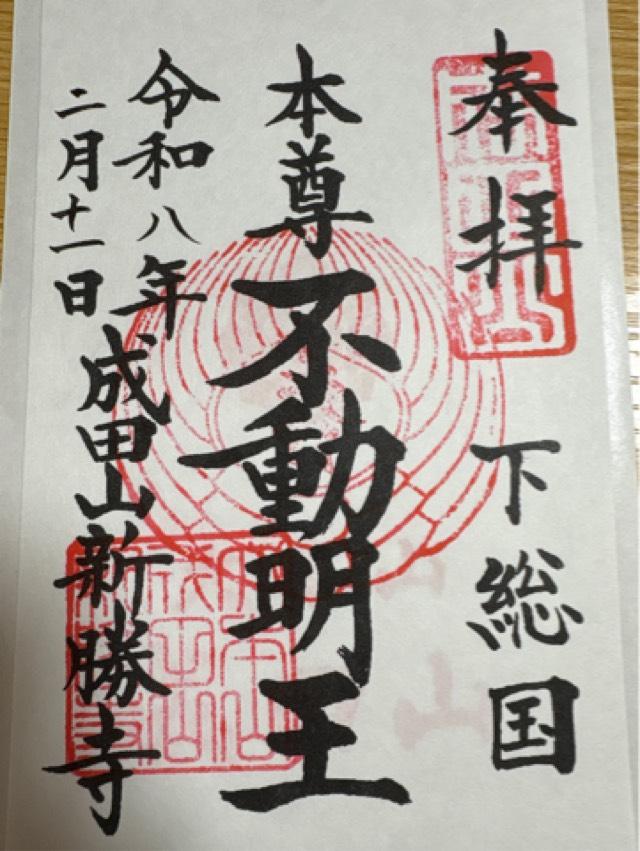 奉拝 下総国
本尊 不動明王
令和八年
二月十一日
成田山新勝寺